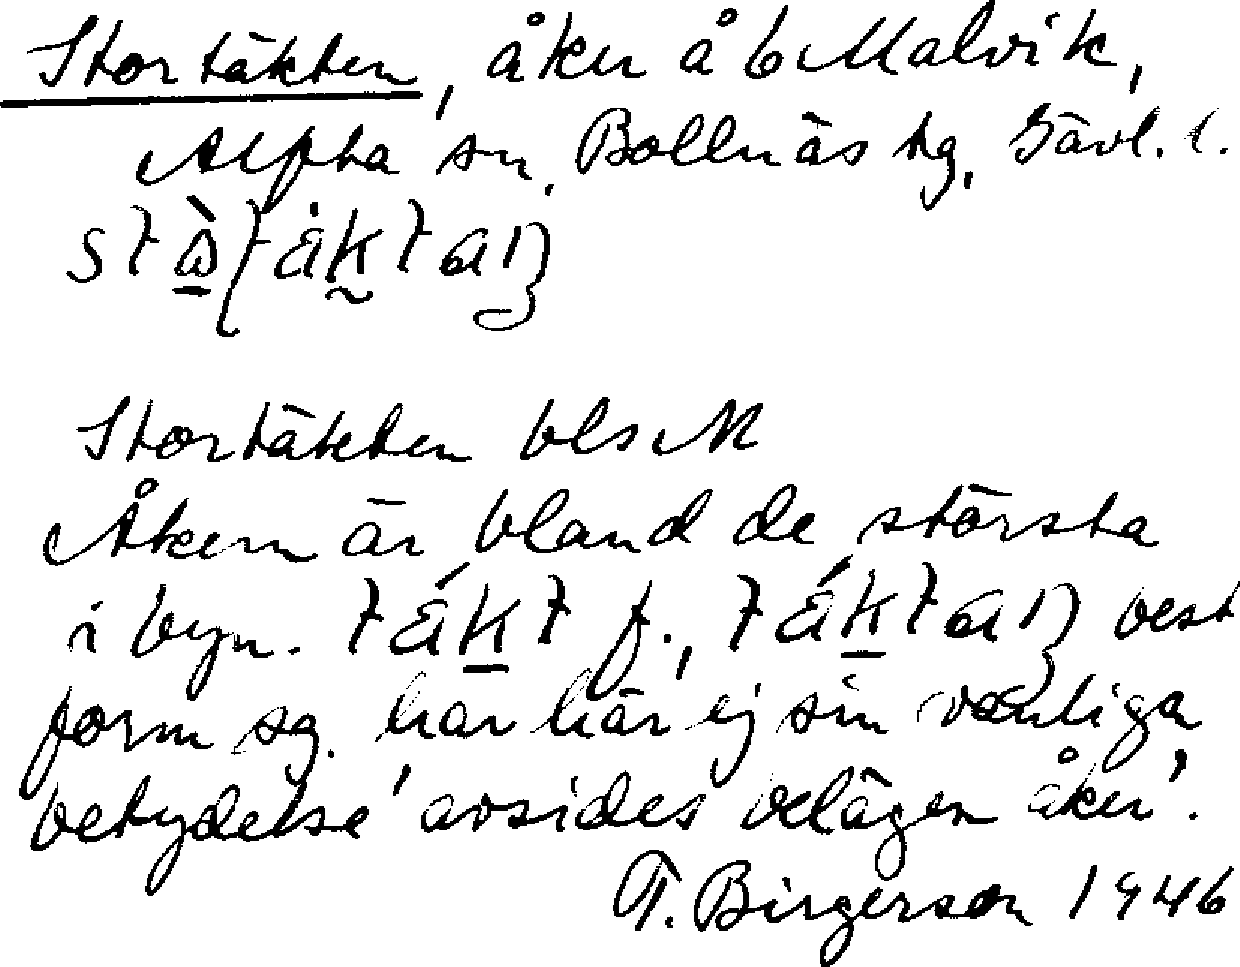 Stortäkten, åker å b Malvik,
Alfta sn, Bollnäs tg, Gävl. l.
Stortäkten bls M
Åkern är bland de största
i byn. f., best
form sg. har här ej sin vanliga
betydelse 'avsides belägen åker'.
T. Birgerson 1946